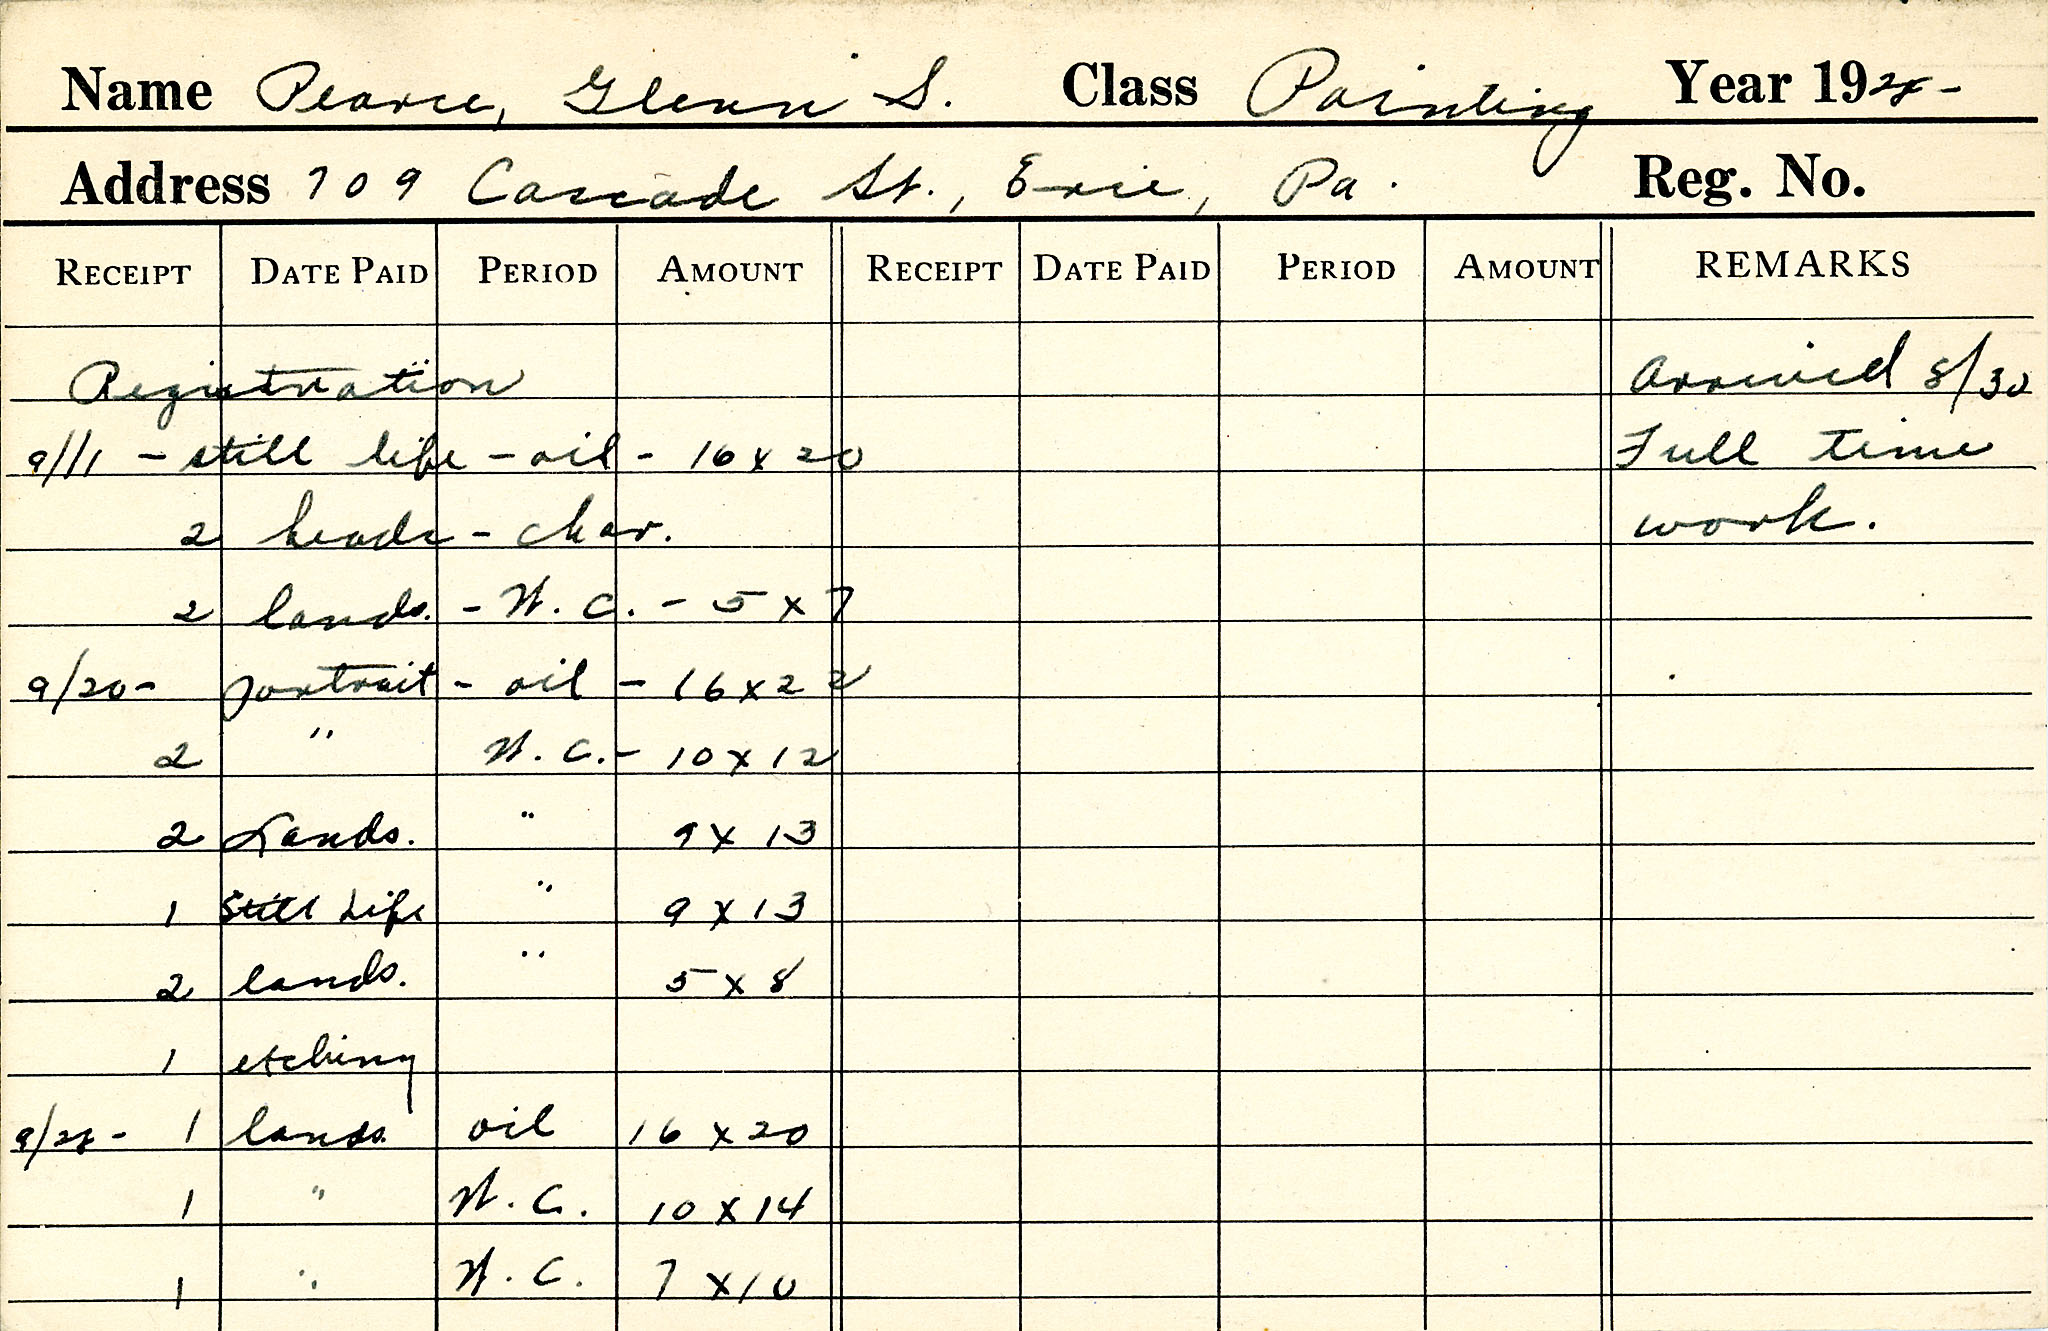 Name Pearce, Glenn S. Class Painting Year 1928-
Address 709 Cascade St., Erie, Pa. Reg. No.
RECEIPT DATE PAID PERIOD AMOUNT RECEIPT DATE PAID PERIOD AMOUNT REMARKS
Registration Arrived 8/30
9/11 - still life - oil - 16 x 20 Full time
2 heads - char. work.
2 lands. - W. C. - 5 x 7
9/20 - portrait - oil - 16 x 22
2 " W. C. - 10 x 12
2 Lands. " 9 x 13
1 Still Life " 9 x 13
2 lands. " 5 x 8
1 etching
9/28 - 1 lands. oil 16 x 20
1 " W. C. 10 x 14
1 " W. C. 7 x 10